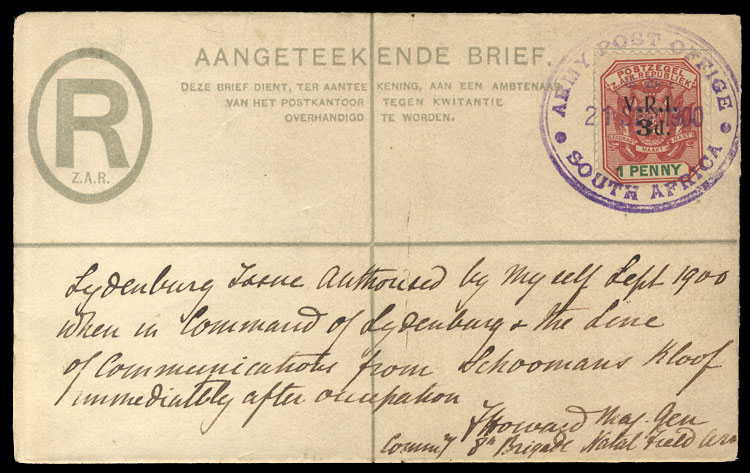 AANGETEEKENDE BRIEF.
DEZE BRIEF DIENT, TER AANTEEKENING, AAN EEN AMBTENAAR
VAN HET POSTKANTOOR TEGEN KWITANTIE
OVERHANDIGD TE WORDEN.
R
Z.A.R.
ARMY POST OFFICE
21 SEP 1900
SOUTH AFRICA
POSTZEGEL
Z. AFR. REPUBLIEK
V.R.I.
3d.
EENDRAGT MAAKT MAGT
1 PENNY
Lydenburg Issue Authorised by Myself Sept 1900
When in Command of Lydenburg & the Line
of Communications from Schoomans Kloof
immediately after occupation
FHoward Maj. Gen
Comm'g 8th Brigade Natal Field